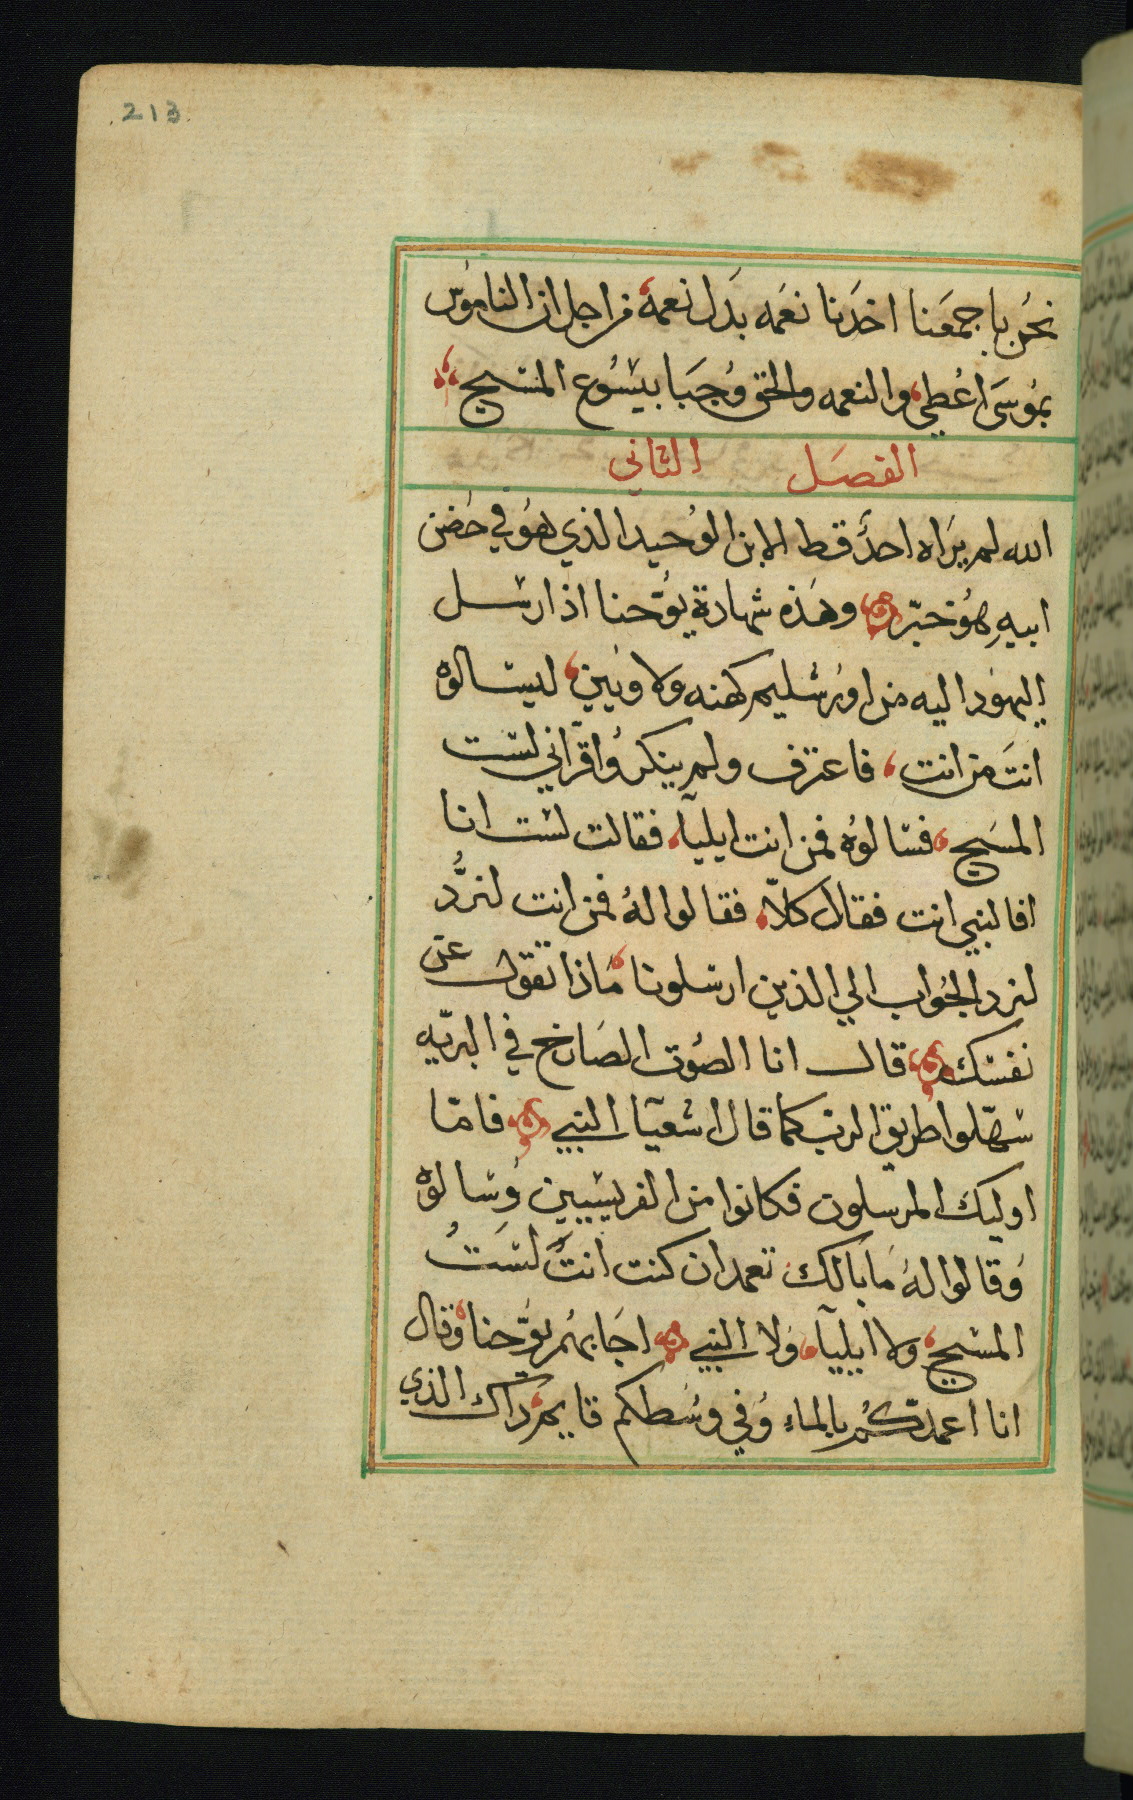 213
نحن باجمعنا اخدنا نعمه بدل نعمة من اجل ان الناموس
بموسى اعطي والنعمه والحق وجبا بيسوع المسيح
الفصل الثاني
الله لم يراه احد قط الابن الوحيد الذي هو في حضن
ابيه هو خبر وهذه شهادة يوحنا اذ ارسل
اليهود اليه من اورشليم كهنه ولاويين ليسالوه
انت من انت فاعترف ولم ينكر واقر اني لست
المسيح فسالوه فمن انت ايليا فقال لست انا
افالنبي انت فقال كلا فقالوا له فمن انت لنرد
لنرد الجواب الي الذين ارسلونا ماذا تقول عن
نفسك قال انا الصوت الصارخ في البريه
سهلوا طريق الرب كما قال اشعيا النبي فاما
اوليك المرسلون فكانوا من الفريسيين وسالوه
وقالوا له ما بالك تعمد ان كنت انت لست
المسيح ولا ايليا ولا النبي اجابهم يوحنا وقال
انا اعمدكم بالماء وفي وسطكم قايم داك الذي